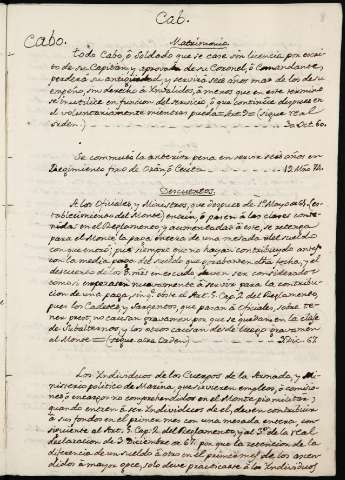 Cab.
Cabo.
Matrimonio.
Todo Cabo, ó Soldado que se case sin licencia por escrito
de su Capitan, y aprovada de su Coronel, ó Comandante,
perderá su antiguedad, y servirá seis años mas de los de su
empeño, sin derecho á Ynvalidos, á menos que en este termino
se inutilice en funcion del servicio, ó que continúe despues en
el voluntariamente mientras pueda
30 Oct. 60.
Se conmutó la anterior pena en servir seis años en
Regimiento fixo de Oran, ó Ceuta
Descuentos.
A los Oficiales y Ministros, que despues de 1º Mayo de 61. (es-
tablecimiento del Monte) entren, ó pasen á las clases conte-
nidas en el Reglamento y aumentadas á este, se retenga
para el Monte la paga entera de una mesada del sueldo
con la media paga del sueldo que gozaban en dha fecha, y el
como si empezasen nuevamente á servir para la contribu-
cion de una paga, sin que obste el Art. 5. Cap. 2. del Reglamento,
pues los Cadetes, y Sargentos, que pasan á Oficiales, sobre te-
ner prest, no causan gravamen por que se quedan en la clase
de Subalternos, y los otros causan desde luego gravamen
al Monte
Dic. 67.
Los Yndividuos de los Cuerpos de la Armada, y Mi-
nisterio politico de Marina, que sirvieren empleos, ó comisio-
nes, ó encargos no comprehendidos en el Monte pio militar;
quando entren á ser Yndividuos de él, deven contribuir
á sus fondos en el primer mes con una mesada entera, con-
siguiente al Art. 5. Cap. 2. del Reglamento, y al 3º de la real
declaracion de 3 Diciembre de 67. por que la retencion de la
diferencia de un sueldo á otro en el primer mes de los ascen-
didos á mayor goce, solo deve practicarse á los Yndividuos